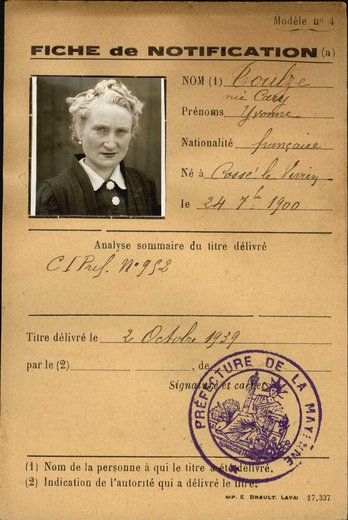 Modèle n° 4
FICHE de NOTIFICATION (a)
NOM (1) Coulze
née Cary
Prénoms Yvonne
Nationalité française
Né à Cossé le Vivien
le 24 7bre 1900
Analyse sommaire du titre délivré
C I Pref. N° 952
Titre délivré le 2 Octobre 1939
par le (2) , de
Signature et cachet
PRÉFECTURE DE LA MAYENNE
(1) Nom de la personne à qui le titre a été délivré.
(2) Indication de l'autorité qui a délivré le titre.
IMP. E. BRAULT, LAVAL 17.337